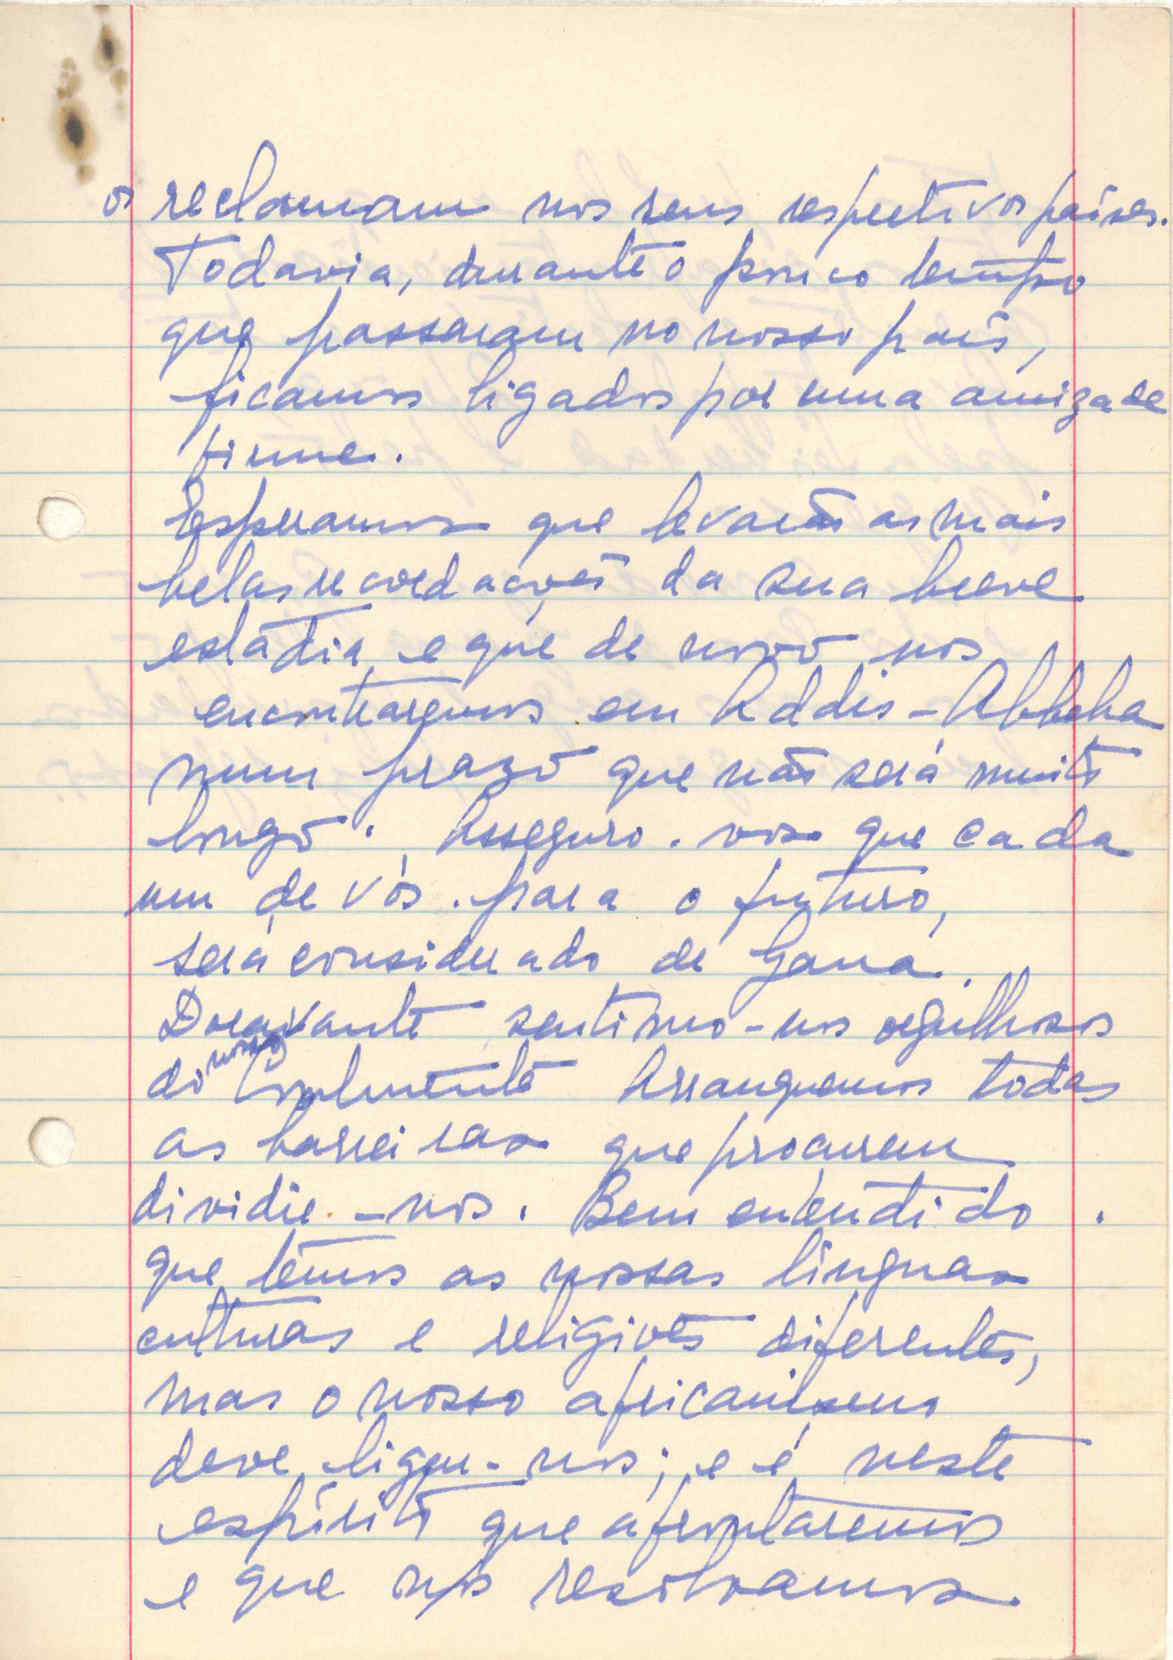 os reclamam nos seus respectivos países.
Todavia, durante o pouco tempo
que passaram no nosso país,
ficamos ligados por uma amizade
firme.
Esperamos que levarão as mais
belas recordações da sua breve
estadia e que de novo nos
encontraremos em Addis-Abbeba
num prazo que não será muito
longo. Asseguro-vos que cada
um de vós, para o futuro,
será considerado de Gana.
Doravante sentimo-nos orgulhosos
do nosso Continente Arranquemos todas
as barreiras que procurem
dividir-nos. Bem entendido.
que temos as nossas linguas
culturas e religiões diferentes,
mas o nosso africanismo
deve ligar-nos; e é neste
espírito que afrontaremos
e que nós resolvamos